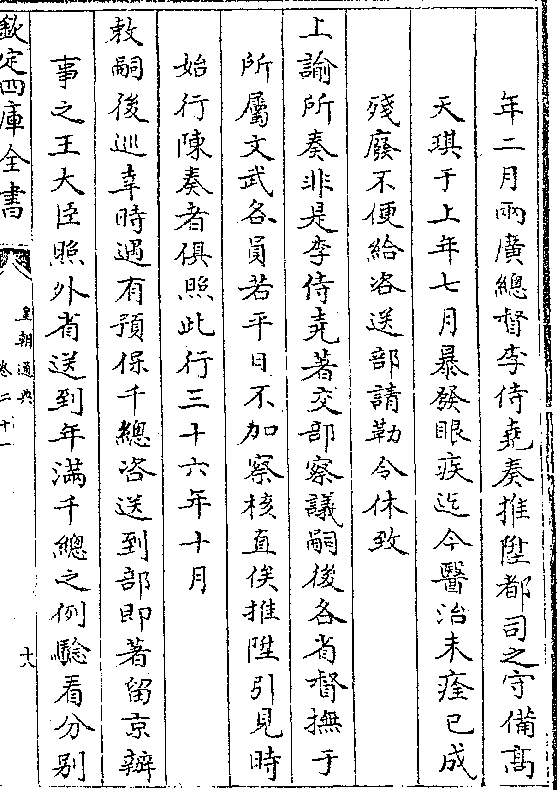 年二月兩廣總督李侍堯奏推陞都司之守備髙
天琪于上年七月暴發眼疾迄今醫治未痊已成
殘廢不便給咨送部請勒令休致
上諭所奏非是李侍堯著交部察議嗣後各省督撫于
所屬文武各員若平日不加察核直俟推陞引見時
始行陳奏者俱照此行三十六年十月
敕嗣後巡幸時遇有預保千總咨送到部即著留京辦
事之王大臣照外省送到年滿千總之例驗看分别
欽定四庫全書
皇朝通典
卷二十一
十八